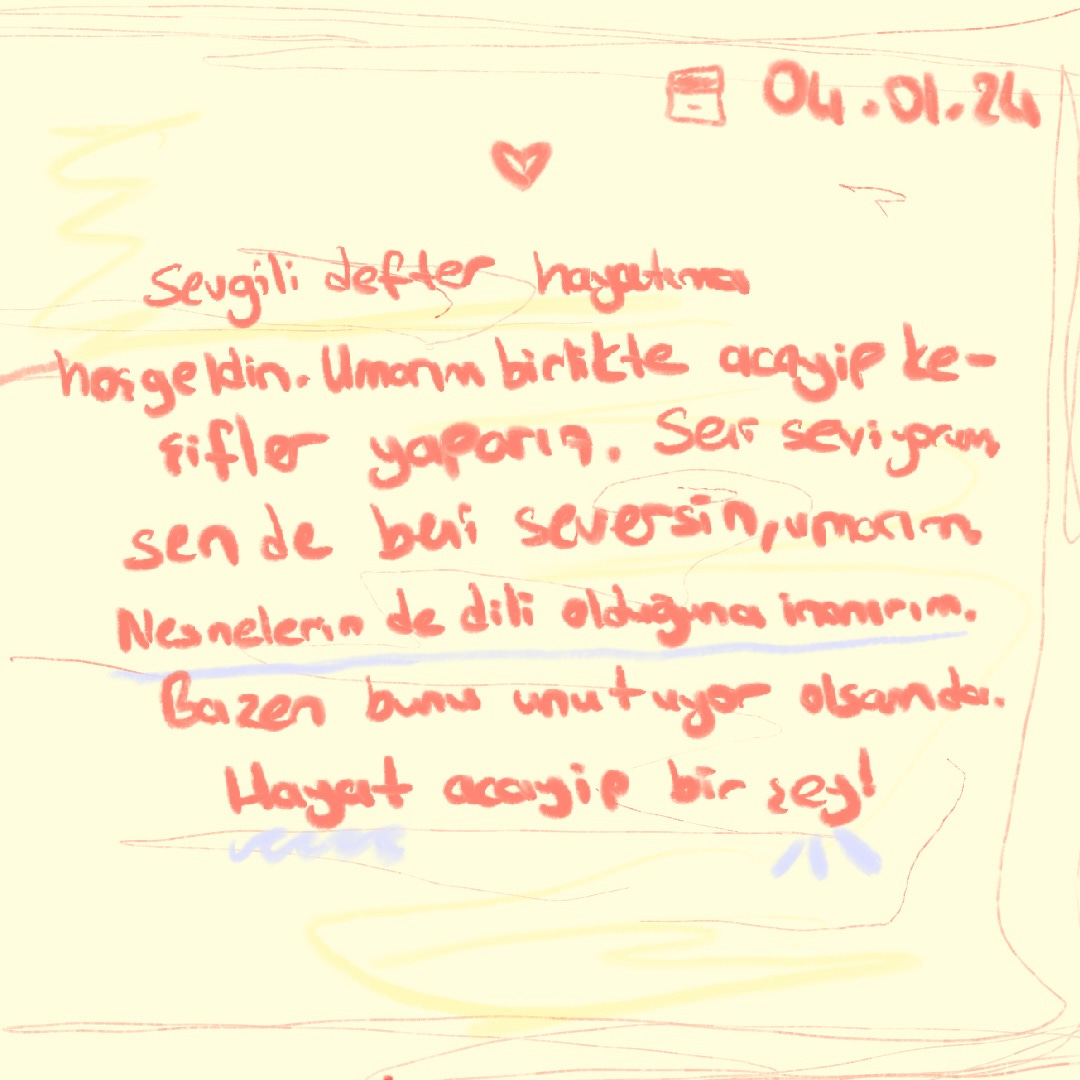 04.01.24
Sevgili defter hayatıma
hoşgeldin. Umarım birlikte acayip ke-
şifler yaparız. Seni seviyorum,
sen de beni seversin, umarım.
Nesnelerin de dili olduğuna inanırım.
Bazen bunu unutuyor olsam da.
Hayat acayip bir şey!